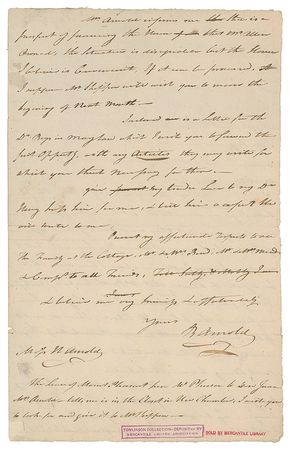 Mrs Arnold informs me there is a
prospect of procuring the House of Mr
Owned, the Situation is disagreeable but the House
I believe is Convenient. If it can be procured,
I suppose Mr Shippen will wish you to move the
begining of Next Month. —
Inclosed is a Letter for the
Dr Boys in Maryland which I wish you to forward the
first Opporty, with any Articles they may write for
which you think Necessary for them. —
give my tender Love to my Dr
Henry kiss him for me, & tell him I expect the
next wrote to me
Present my affectionate Respects to
the Family at the Cottage,
& Compts to all Friends,
& believe me very sincerely & affectionately
Yours
B Arnold
Miss H Arnold
The Lease of Mount Pleasant from Mr
Mrs Arnold tells me is in the Closet in Her Chamber, I wish you
to look for and give it to Mr Shippen —
TOMLINSON COLLECTION—DEPOSITED BY
MERCANTILE LIBRARY ASSOCIATION
SOLD BY MERCANTILE LIBRARY